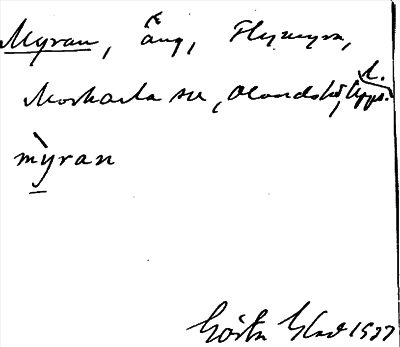 Myran, äng, Flymyra,
Morkarla sn, Olands hd, Upps. l.
mỳran
Gösta Glad 1937